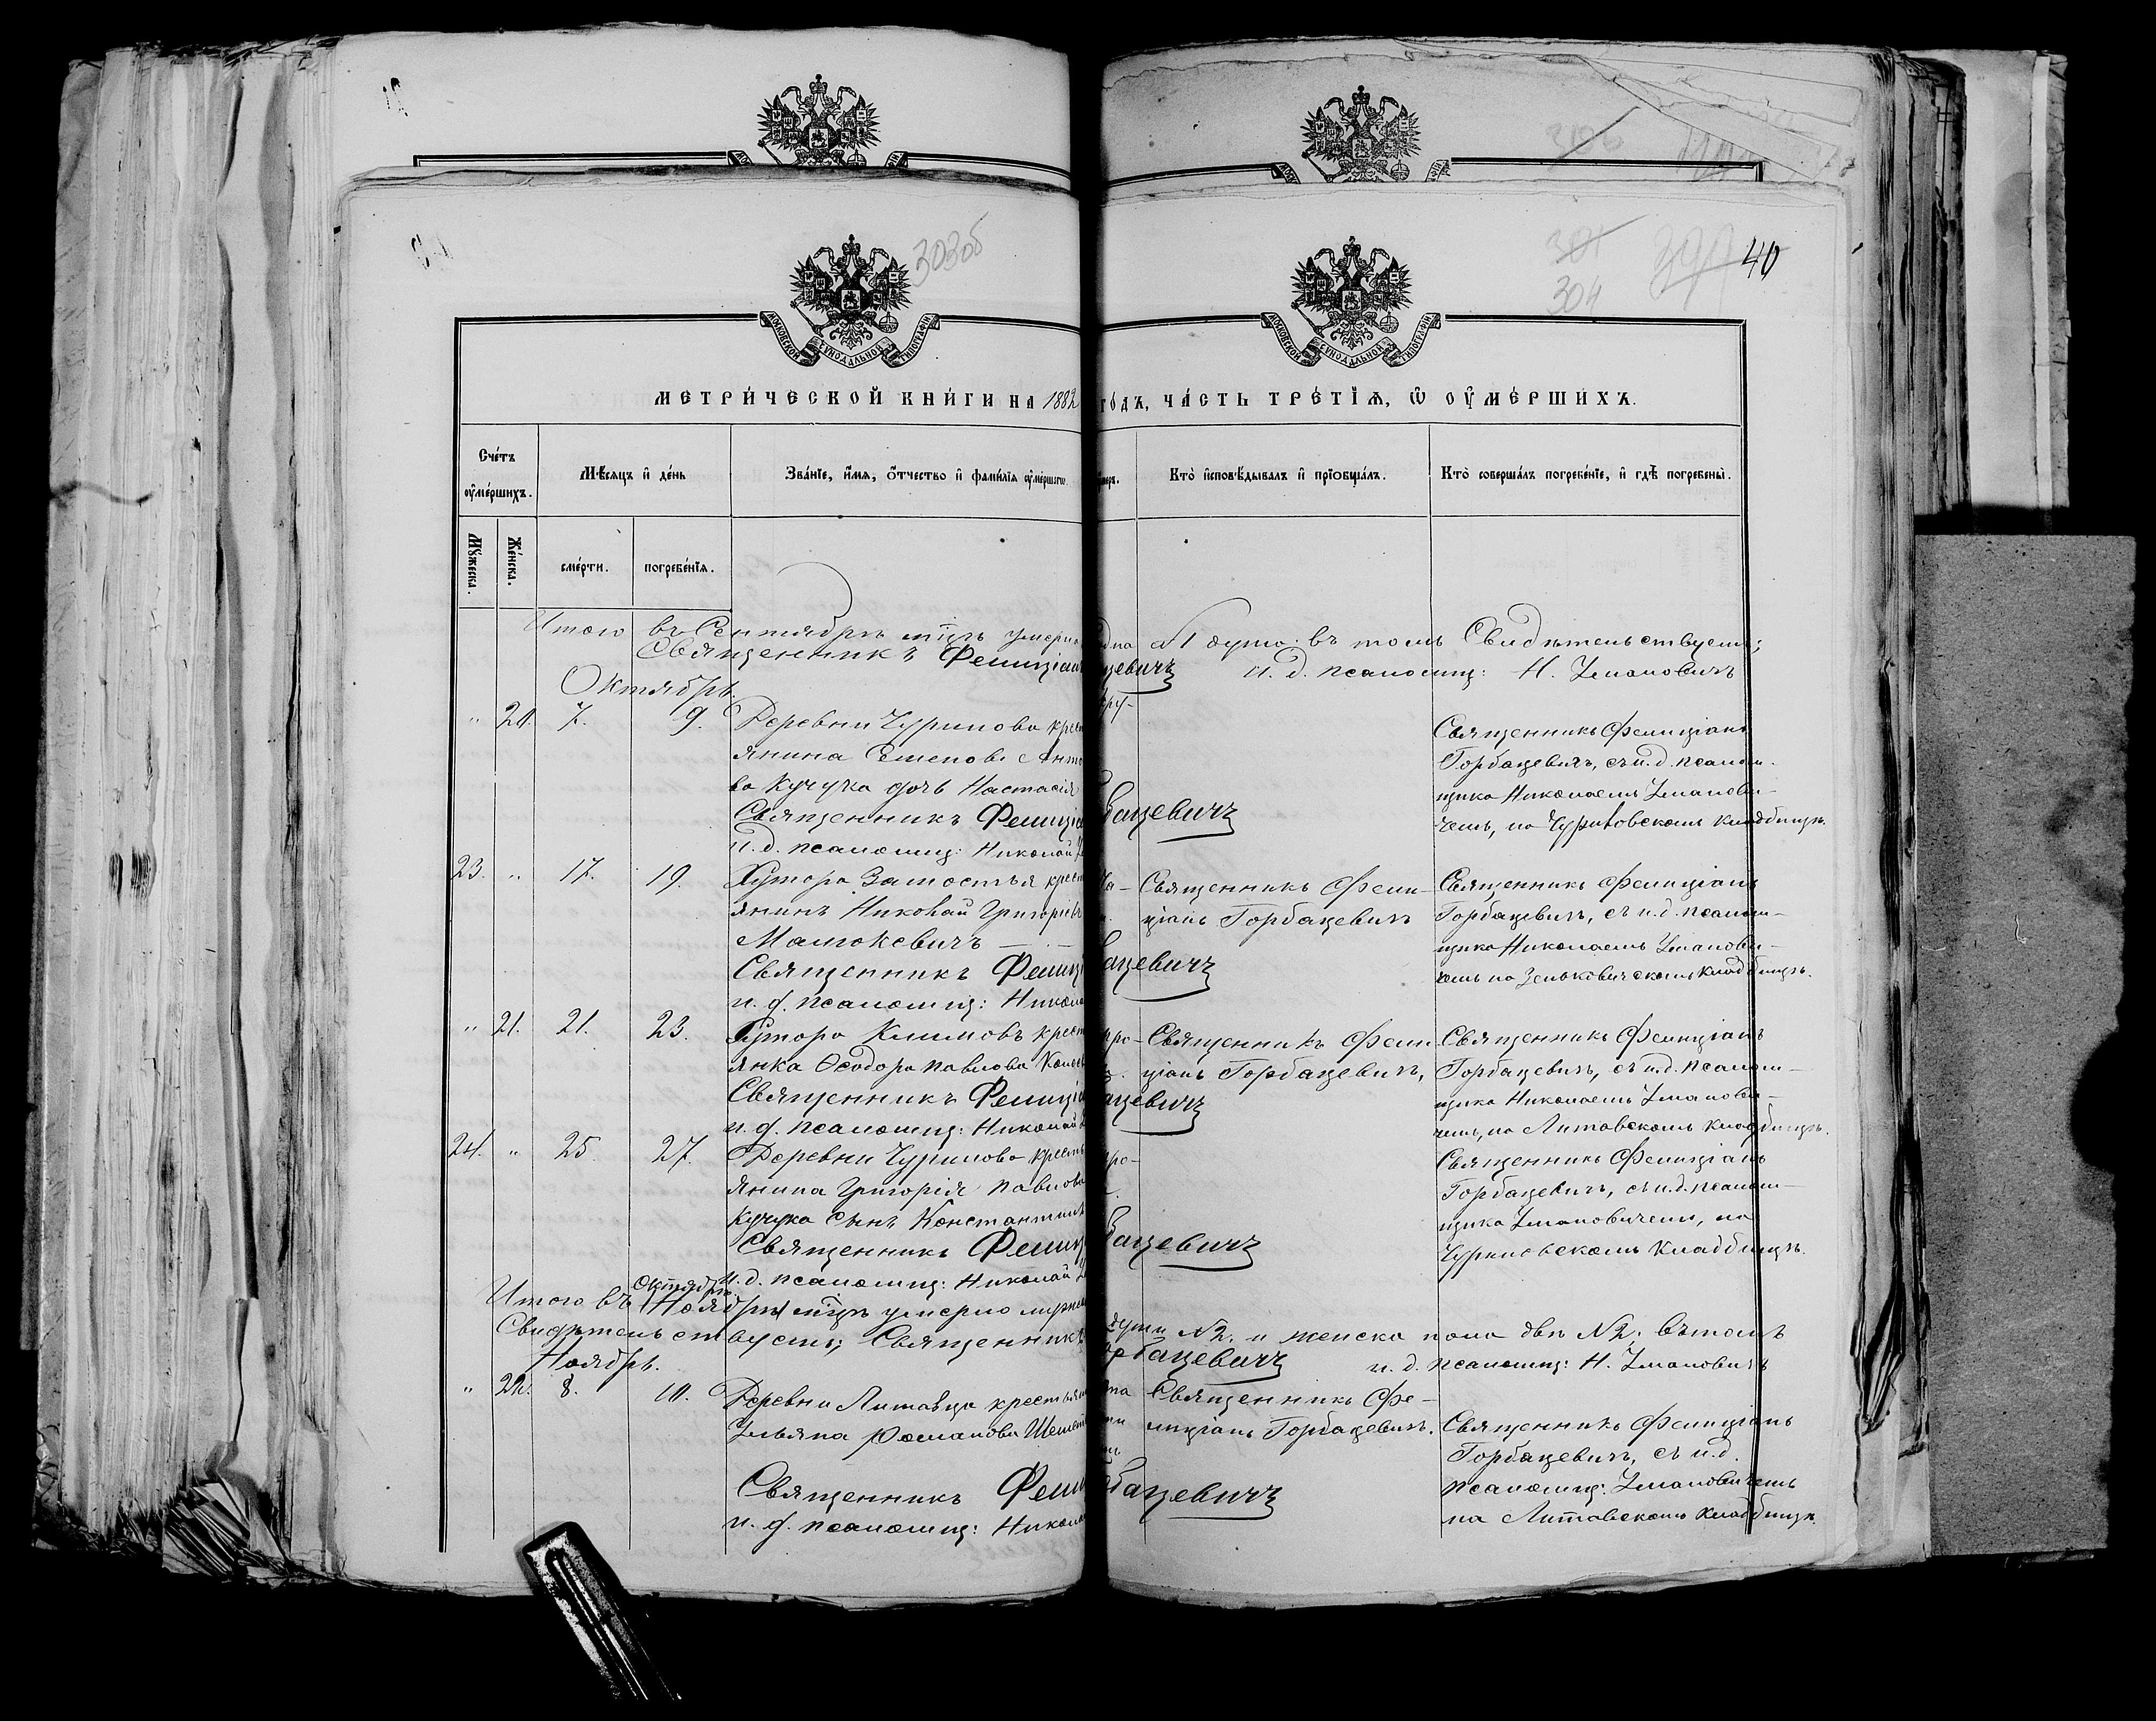 303об
301
304
40
МОСКОВСКОЙ СѴНОДАЛЬНОЙ ТИПОГРАФІИ
МОСКОВСКОЙ СѴНОДАЛЬНОЙ ТИПОГРАФІИ
МЕТРИ́ЧЕСКОЙ КНИ́ГИ НА 1882 ГОДЪ, ЧА́СТЬ ТРЕ́ТІѦ, Ѡ ОУМЕ́РШИХЪ.
Сче́тъ оумéршихъ.
Мѣсяцъ и де́нь
Зва́ніе, и́мя, о́тчество и фами́лія оумéршагѡ.
Кто̀ исповѣдывалъ и пріобща́лъ.
Кто̀ соверша́лъ погребе́ніе, и гдѣ погребены̀.
Мꙋ́жеска.
Же́нска.
сме́рти.
погребе́нія.
Итого въ Сентябрѣ мцѣ умерла
одна №1 душа: въ томъ Свидѣтельствуемъ;
Священникъ Фелиціан
цевичъ и. д. псаломщ: Н. Умановичъ
Октябрь.
" 20. 7. 9. Деревни Чурилова крест
янина Семенова Анто
ва Кучука дочь Настасія
Священникъ Фелиціа
бацевичъ
и. д. псаломщ: Николай
Священникъ Фелиціанъ
Горбацевичъ, съ и. д. псалом-
щика Николаемъ Уманови-
чемъ, на Чуриловскомъ кладбищѣ.
23. " 17. 19. Хутора Замостья крест
янинъ Николай Григорьевъ
Малюкевичъ
Священникъ Фелиці
ацевичъ
и. д. псаломщ: Никола
Священникъ Фели-
ціанъ Горбацевичъ
Священникъ Фелиціанъ
Горбацевичъ, съ и. д. псалом-
щика Николаемъ Уманови-
чемъ на Зеньковическомъ кладбищѣ.
" 21. 21. 23. Хутора Климовъ крест
янка Ѳеодора Павлова
Священникъ Фелиціа
ацевичъ
и. д. псаломщ: Николай
Священникъ Фели
ціанъ Горбацевичъ,
Священникъ Фелиціанъ
Горбацевичъ, съ и. д. псалом-
щика Николаемъ Уманови-
чемъ, на Литовскомъ кладбищѣ.
24. " 25. 27. Деревни Чурилова кресть
янина Григорія Павлова
Кучука сынъ Константинъ
Священникъ Фелиц
бацевичъ
и. д. псаломщ: Николай
Священникъ Фелиціанъ
Горбацевичъ, съ и. д. псалом-
щика Умановичемъ, на
Чуриловскомъ кладбищѣ.
Октябрѣ
Итого въ Ноябрѣ мцѣ умерло мужеск
души №2. и женска пола двѣ №2; въ томъ
Свидѣтельствуемъ; Священникъ
рбацевичъ и. д. псаломщ: Н. Умановичъ
Ноябрь.
" 22. 8. 10. Деревни Литовца крестьян
Ульяна Романова
Священникъ Фели
бацевичъ
и. д. псаломщ: Никола
Священникъ Фе-
лиціанъ Горбацевичъ.
Священникъ Фелиціанъ
Горбацевичъ, съ и. д.
псаломщ: Умановичемъ
на Литовскомъ кладбищѣ.